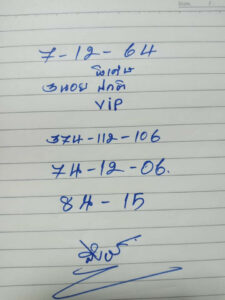 7-12-64
พิเศษ
ฮานอย ปกติ
VIP
374-112-106
74-12-06.
84-15